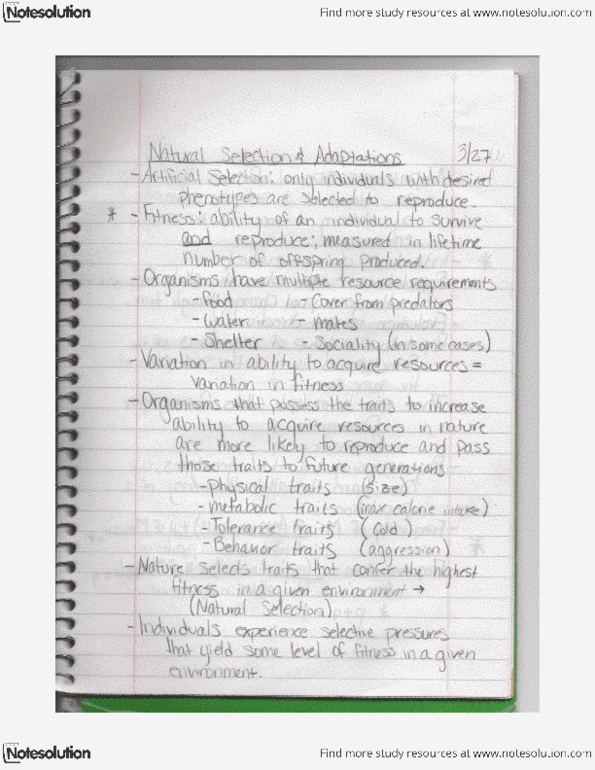 Notesolution
Find more study resources at www.notesolution.com
Natural Selection & Adaptations 3/27
- Artificial Selection: only individuals with desired
phenotypes are selected to reproduce.
* - Fitness: ability of an individual to survive
and reproduce; measured in lifetime
number of offspring produced.
- Organisms have multiple resource requirements
- Food - Cover from predators
- Water - mates
- Shelter - Sociality (in some cases)
- Variation in ability to acquire resources =
Variation in fitness
- Organisms that possess the traits to increase
ability to acquire resources in nature
are more likely to reproduce and pass
those traits to future generations
- Physical traits (size)
- metabolic traits (max calorie intake)
- Tolerance traits (cold)
- Behavior traits (aggression)
- Nature selects traits that confer the highest
fitness in a given environment →
(Natural Selection)
- Individuals experience selective pressures
that yield some level of fitness in a given
environment.
Notesolution
Find more study resources at www.notesolution.com